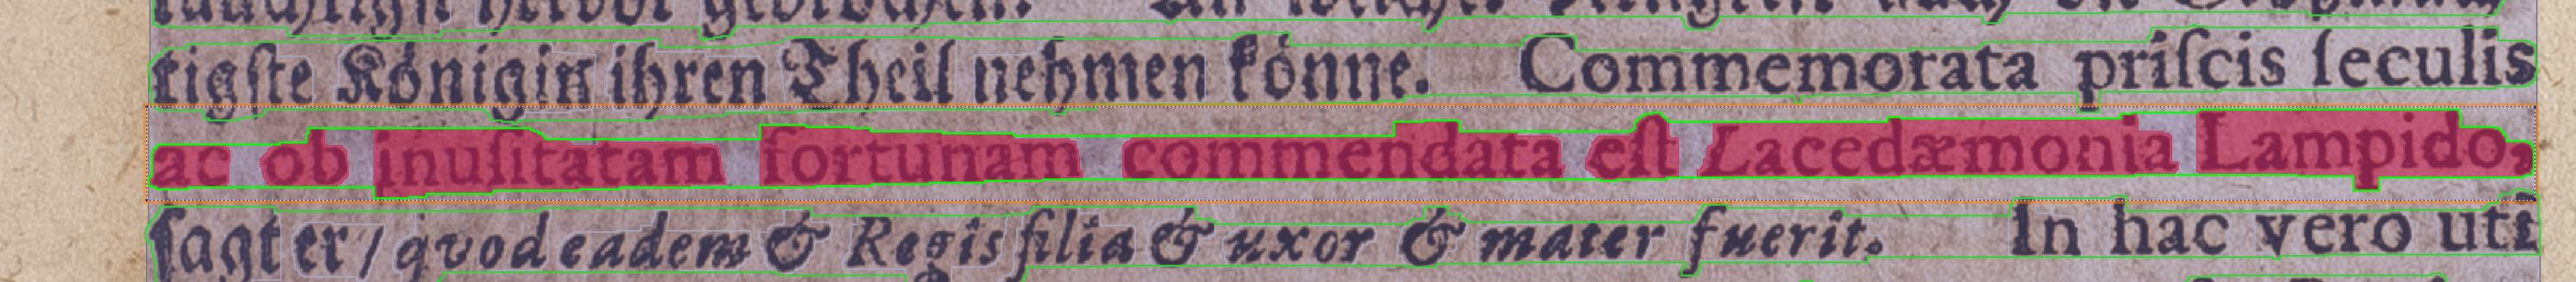 tigſte Königin ihren Theil nehmen könne. Commemorata priſcis ſeculis
ac ob inuſitatam fortunam commendata eſt Lacedæmonia Lampido,
ſagt er / quod eadem & Regis filia & uxor & mater fuerit. In hac vero uti